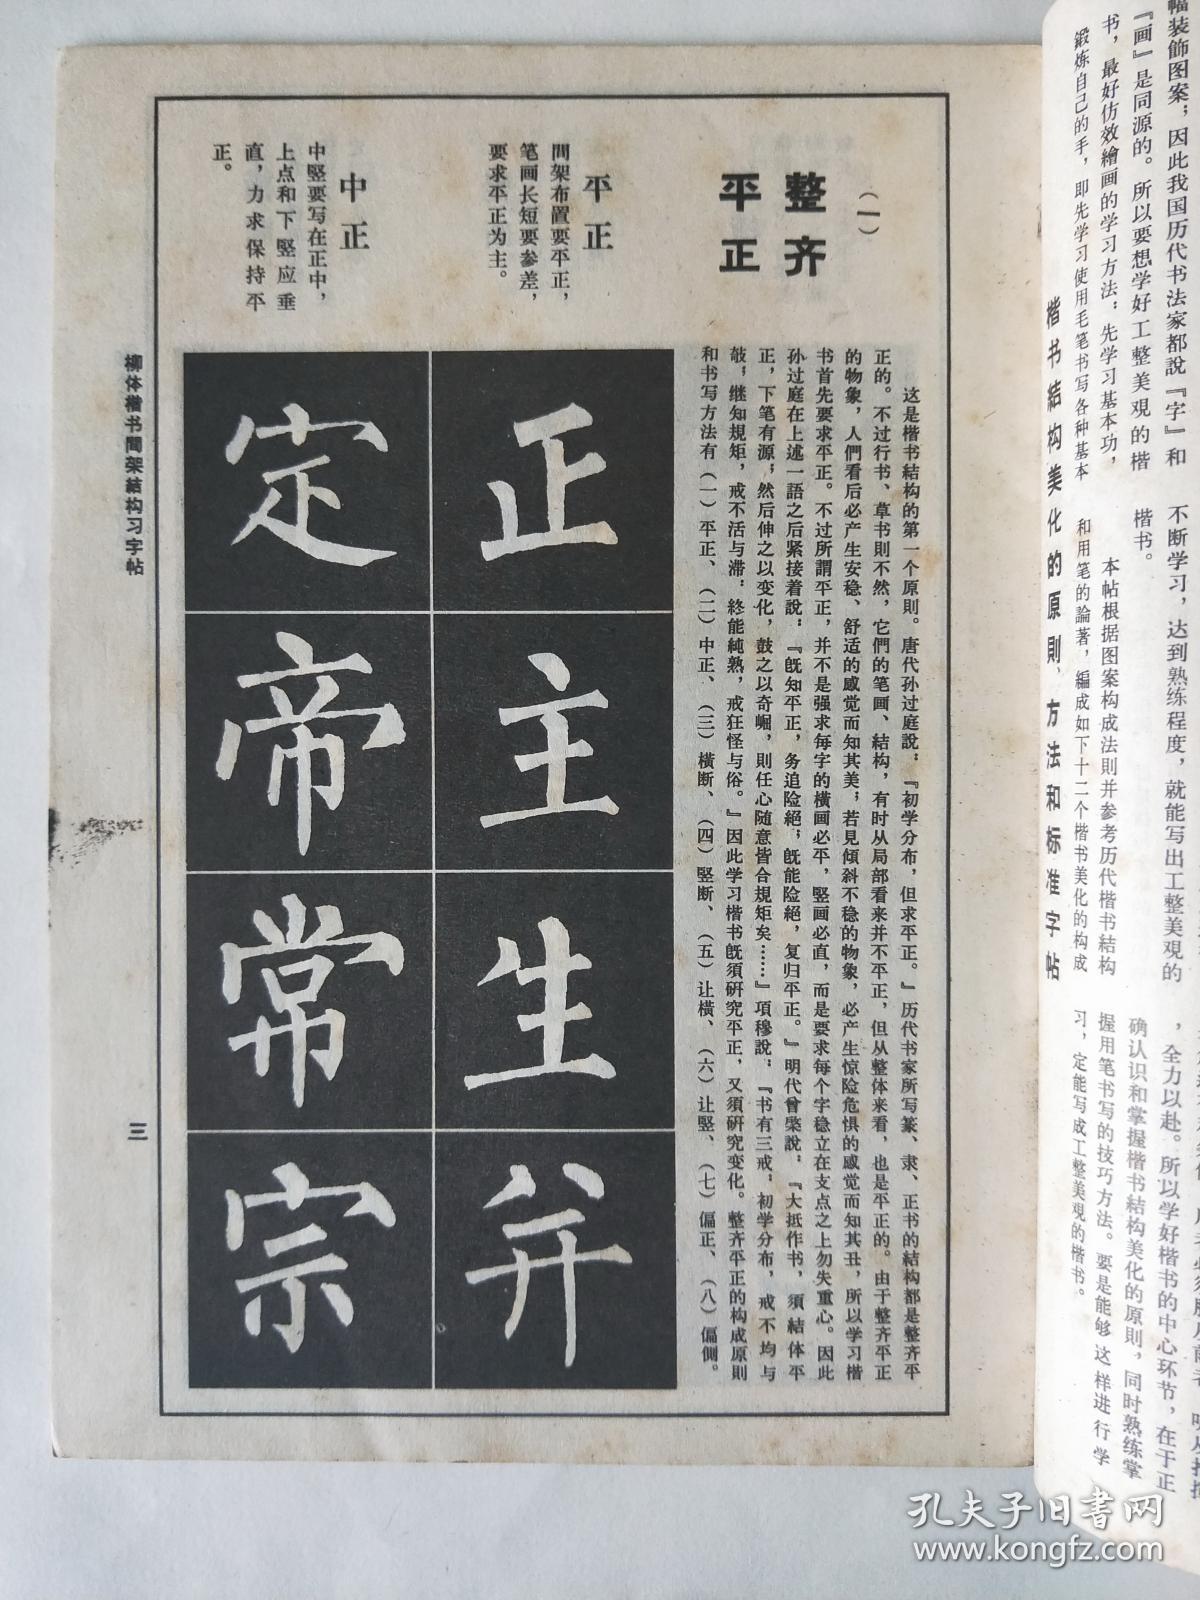 幅装飾图案；因此我国历代书法家都說『字』和
『画』是同源的。所以要想学好工整美观的楷
书，最好仿效繪画的学习方法：先学习基本功，
鍛炼自己的手，即先学习使用毛笔书写各种基本
不断学习，达到熟练程度，就能写出工整美观的
楷书。
本帖根据图案构成法則并参考历代楷书結构
和用笔的論著，編成如下十二个楷书美化的构成
，全力以赴。所以学好楷书的中心环节，在于正
确认识和掌握楷书結构美化的原則，同时熟练掌
握用笔书写的技巧方法。要是能够这样进行学
习，定能写成工整美观的楷书。
楷书結构美化的原則、方法和标准字帖
（一）
整齐
平正
这是楷书結构的第一个原則。唐代孙过庭說：『初学分布，但求平正。』历代书家所写篆、隶、正书的結构都是整齐平
正的。不过行书、草书則不然，它們的笔画、結构，有时从局部看来并不平正，但从整体来看，也是平正的。由于整齐平正
的物象，人們看后必产生安稳、舒适的感觉而知其美；若見傾斜不稳的物象，必产生惊险危惧的感觉而知其丑，所以学习楷
书首先要求平正。不过所謂平正，并不是强求每字的橫画必平，竪画必直，而是要求每个字稳立在支点之上勿失重心。因此
孙过庭在上述一語之后紧接着說：『旣知平正，务追险絕；旣能险絕，复归平正。』明代曾棨說：『大抵作书，須結体平
正，下笔有源；然后伸之以变化，鼓之以奇崛，則任心随意皆合規矩矣……』項穆說：『书有三戒，初学分布，戒不均与
攲；继知規矩，戒不活与滞；終能純熟，戒狂怪与俗。』因此学习楷书旣須研究平正，又須研究变化。整齐平正的构成原則
和书写方法有（一）平正、（二）中正、（三）橫断、（四）竪断、（五）让橫、（六）让竪、（七）偏正、（八）偏側。
平正
間架布置要平正，
笔画长短要参差，
要求平正为主。
正主生并
中正
中竪要写在正中，
上点和下竪应垂
直，力求保持平
正。
定帝常宗
柳体楷书間架結构习字帖
三
孔夫子旧书网
www.kongfz.com